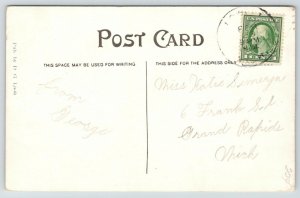 POST CARD
THIS SPACE MAY BE USED FOR WRITING
THIS SIDE FOR THE ADDRESS ONLY
From
George
Miss Katie
6 Frank St.
Grand Rapids
Mich